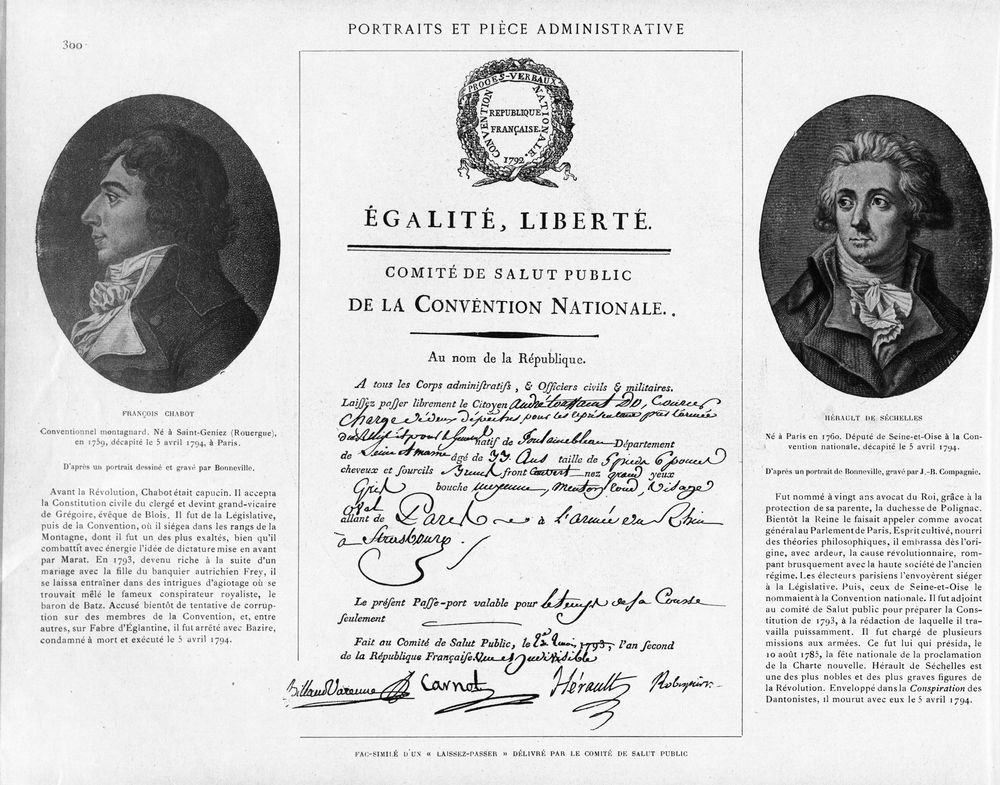 300
PORTRAITS ET PIÈCE ADMINISTRATIVE
PROCES-VERBAUX
CONVENTION NATIONALE.
REPUBLIQUE
FRANÇAISE.
1792
ÉGALITÉ, LIBERTÉ.
COMITÉ DE SALUT PUBLIC
DE LA CONVENTION NATIONALE..
Au nom de la République.
A tous les Corps administratifs, & Officiers civils & militaires.
Laissez passer librement le Citoyen André toussaint Courier
Chargé de deux dépeches pour les représentans près l'armée
du Rhin et pour le natif de Fontainebleau Département
de Seine et marne âgé de 33 Ans taille de 5 pieds 6 pouces
cheveux et sourcils Bruns front Couvert nez grand yeux
Gris bouche moyenne, Menton rond, Visage
Oval
allant de Paris à L'armée du Rhin
à Strasbourg.
Le présent Passe-port valable pour le temps de sa Course
seulement
Fait au Comité de Salut Public, le 1793, l'an second
de la République Française une et indivisible
Billaud Varenne Carnot Hérault Robespierre
FRANÇOIS CHABOT
Conventionnel montagnard. Né à Saint-Geniez (Rouergue),
en 1759, décapité le 5 avril 1794, à Paris.
D'après un portrait dessiné et gravé par Bonneville.
Avant la Révolution, Chabot était capucin. Il accepta
la Constitution civile du clergé et devint grand-vicaire
de Grégoire, évêque de Blois. Il fut de la Législative,
puis de la Convention, où il siégea dans les rangs de la
Montagne, dont il fut un des plus exaltés, bien qu'il
combattît avec énergie l'idée de dictature mise en avant
par Marat. En 1793, devenu riche à la suite d'un
mariage avec la fille du banquier autrichien Frey, il
se laissa entraîner dans des intrigues d'agiotage où se
trouvait mêlé le fameux conspirateur royaliste, le
baron de Batz. Accusé bientôt de tentative de corrup-
tion sur des membres de la Convention, et, entre
autres, sur Fabre d'Églantine, il fut arrêté avec Bazire,
condamné à mort et exécuté le 5 avril 1794.
HÉRAULT DE SÉCHELLES
Né à Paris en 1760. Député de Seine-et-Oise à la Con-
vention nationale, décapité le 5 avril 1794.
D'après un portrait de Bonneville, gravé par J.-B. Compagnie.
Fut nommé à vingt ans avocat du Roi, grâce à la
protection de sa parente, la duchesse de Polignac.
Bientôt la Reine le faisait appeler comme avocat
général au Parlement de Paris. Esprit cultivé, nourri
des théories philosophiques, il embrassa dès l'ori-
gine, avec ardeur, la cause révolutionnaire, rom-
pant brusquement avec la haute société de l'ancien
régime. Les électeurs parisiens l'envoyèrent siéger
à la Législative. Puis, ceux de Seine-et-Oise le
nommaient à la Convention nationale. Il fut adjoint
au comité de Salut public pour préparer la Cons-
titution de 1793, à la rédaction de laquelle il tra-
vailla puissamment. Il fut chargé de plusieurs
missions aux armées. Ce fut lui qui présida, le
10 août 1785, la fête nationale de la proclamation
de la Charte nouvelle. Hérault de Séchelles est
une des plus nobles et des plus graves figures de
la Révolution. Enveloppé dans la Conspiration des
Dantonistes, il mourut avec eux le 5 avril 1794.
FAC-SIMILÉ D'UN « LAISSEZ-PASSER » DÉLIVRÉ PAR LE COMITÉ DE SALUT PUBLIC